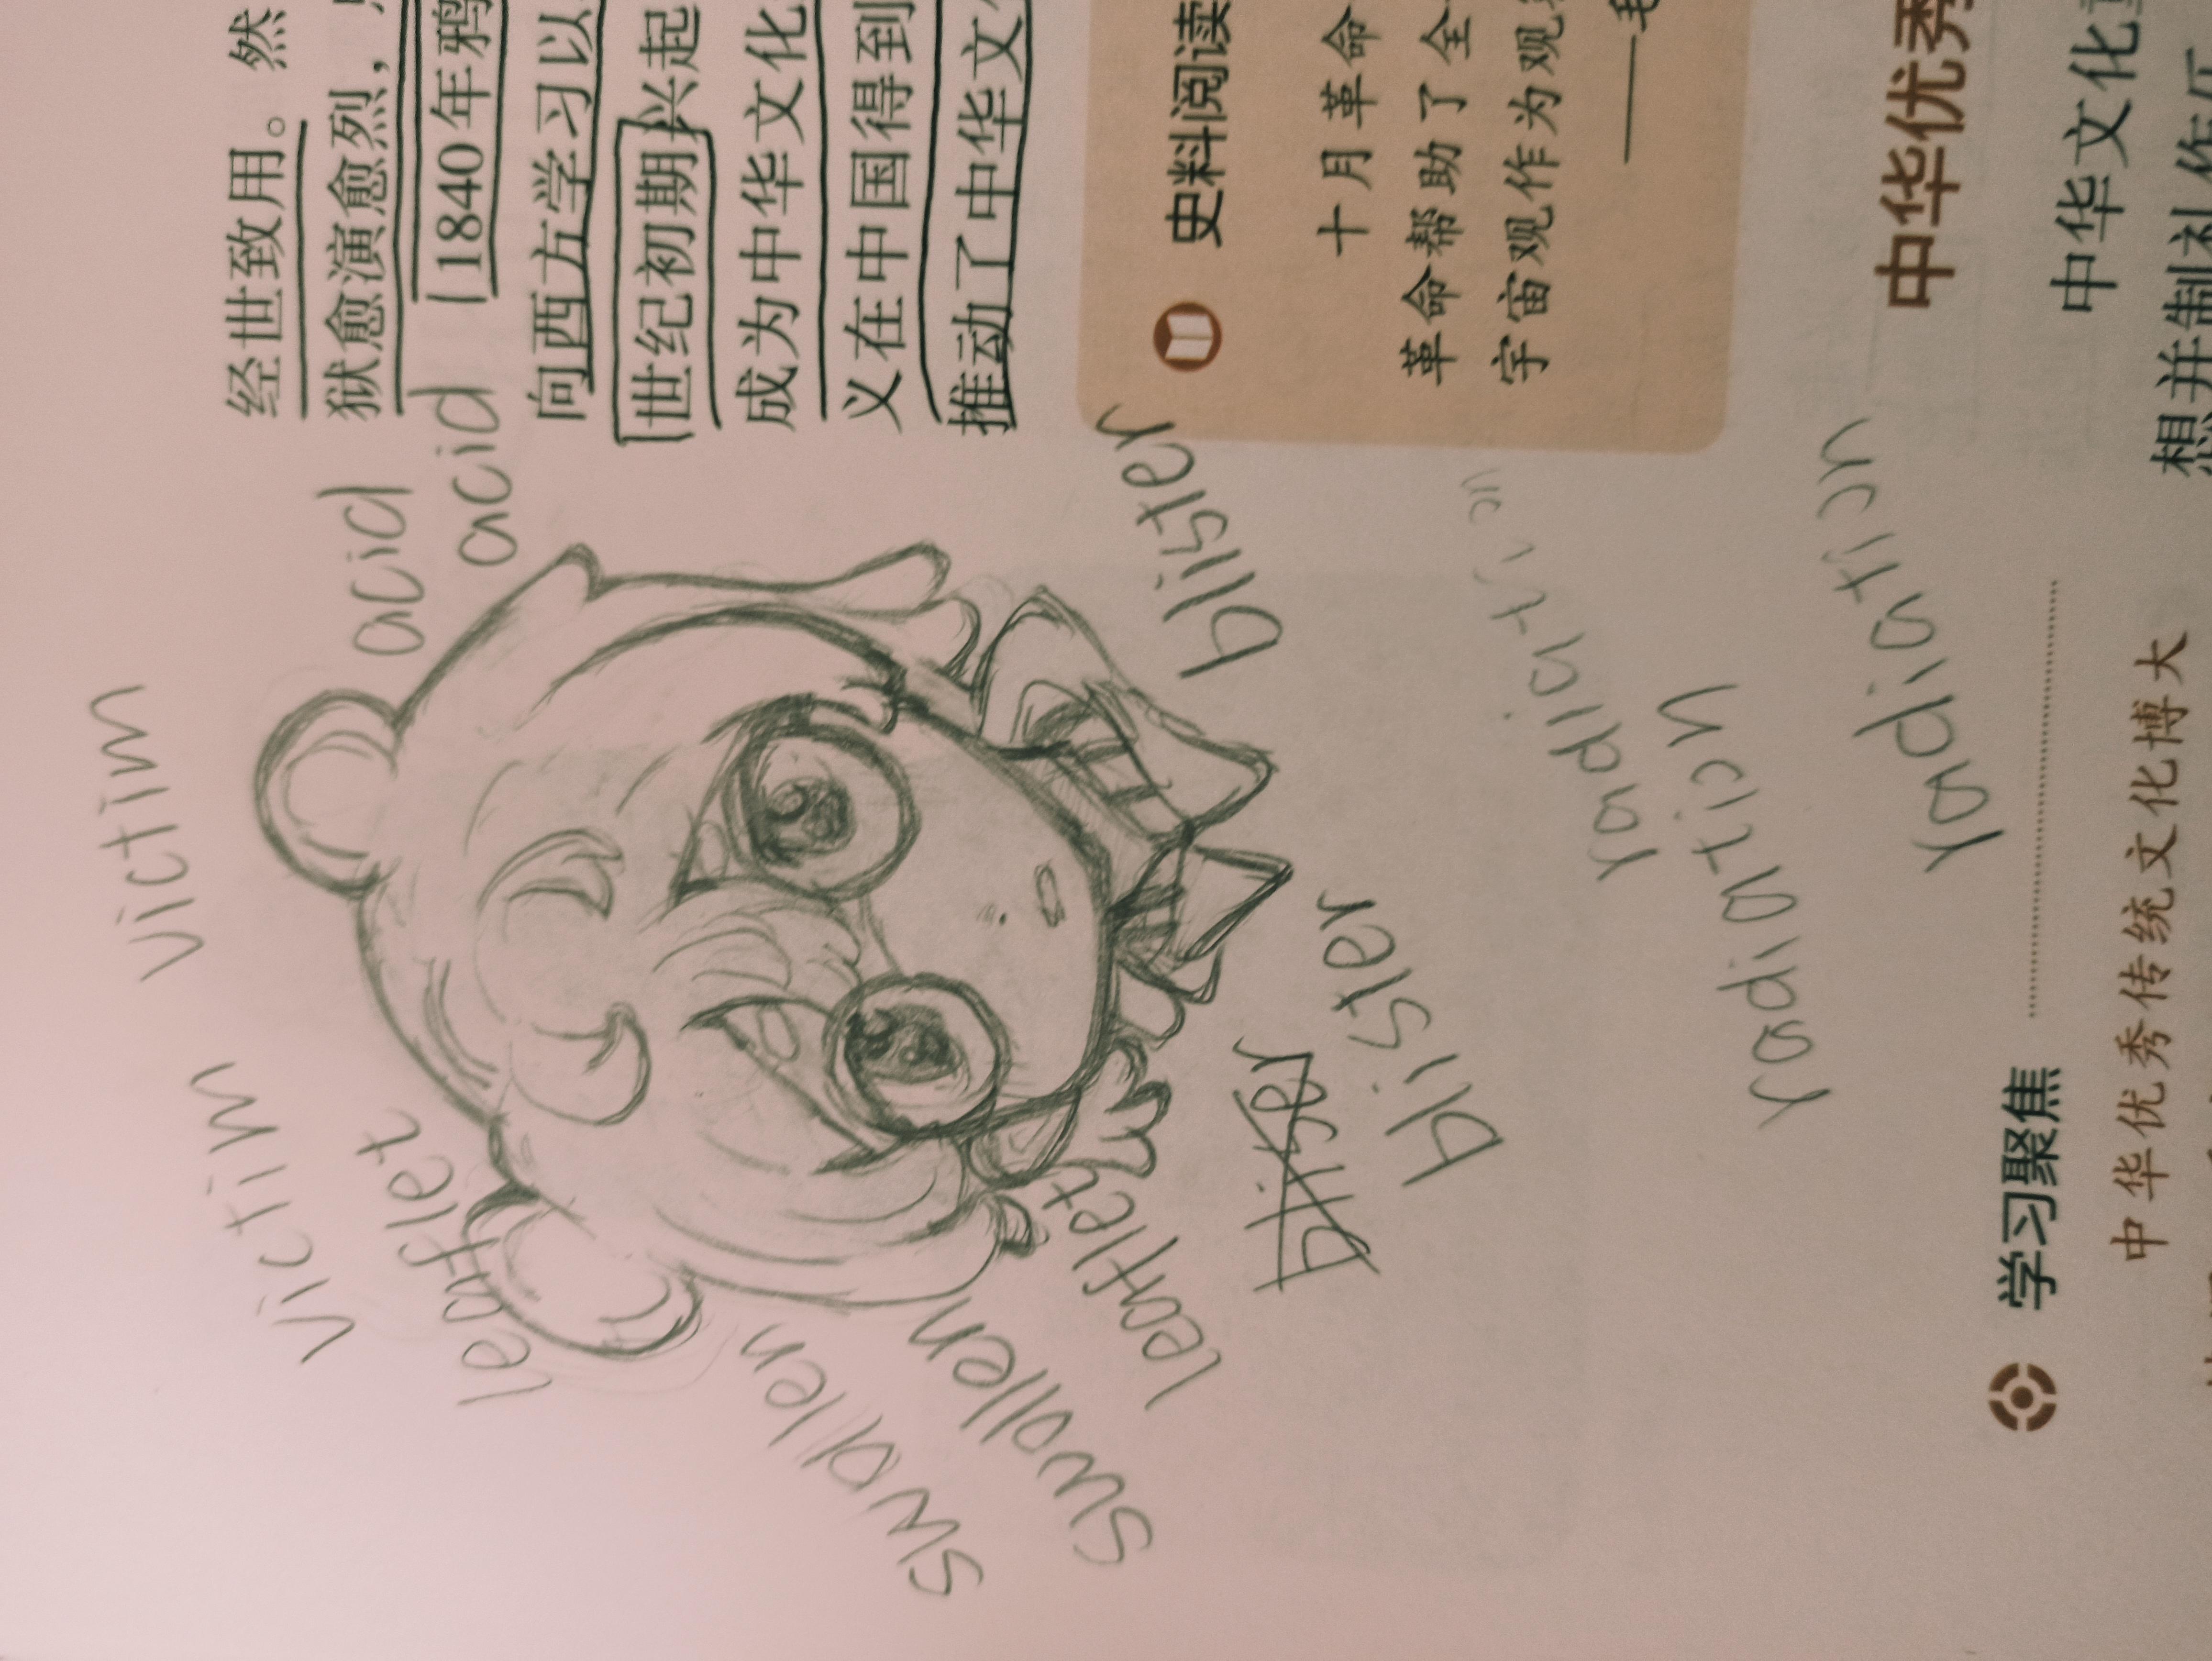 经世致用。然
狱愈演愈烈，
1840年鸦
向西方学习以
世纪初期兴起
成为中华文化
义在中国得到
推动了中华文
史料阅读
十月革命
革命帮助了全
宇宙观作为观
——毛
中华优秀
中华文化
想并制礼作
学习聚焦
中华优秀传统文化博大
victim
victim
acid
acid
leaflet
leaflet
swollen
swollen
blister
blister
bliser
radiation
radiation
radiation